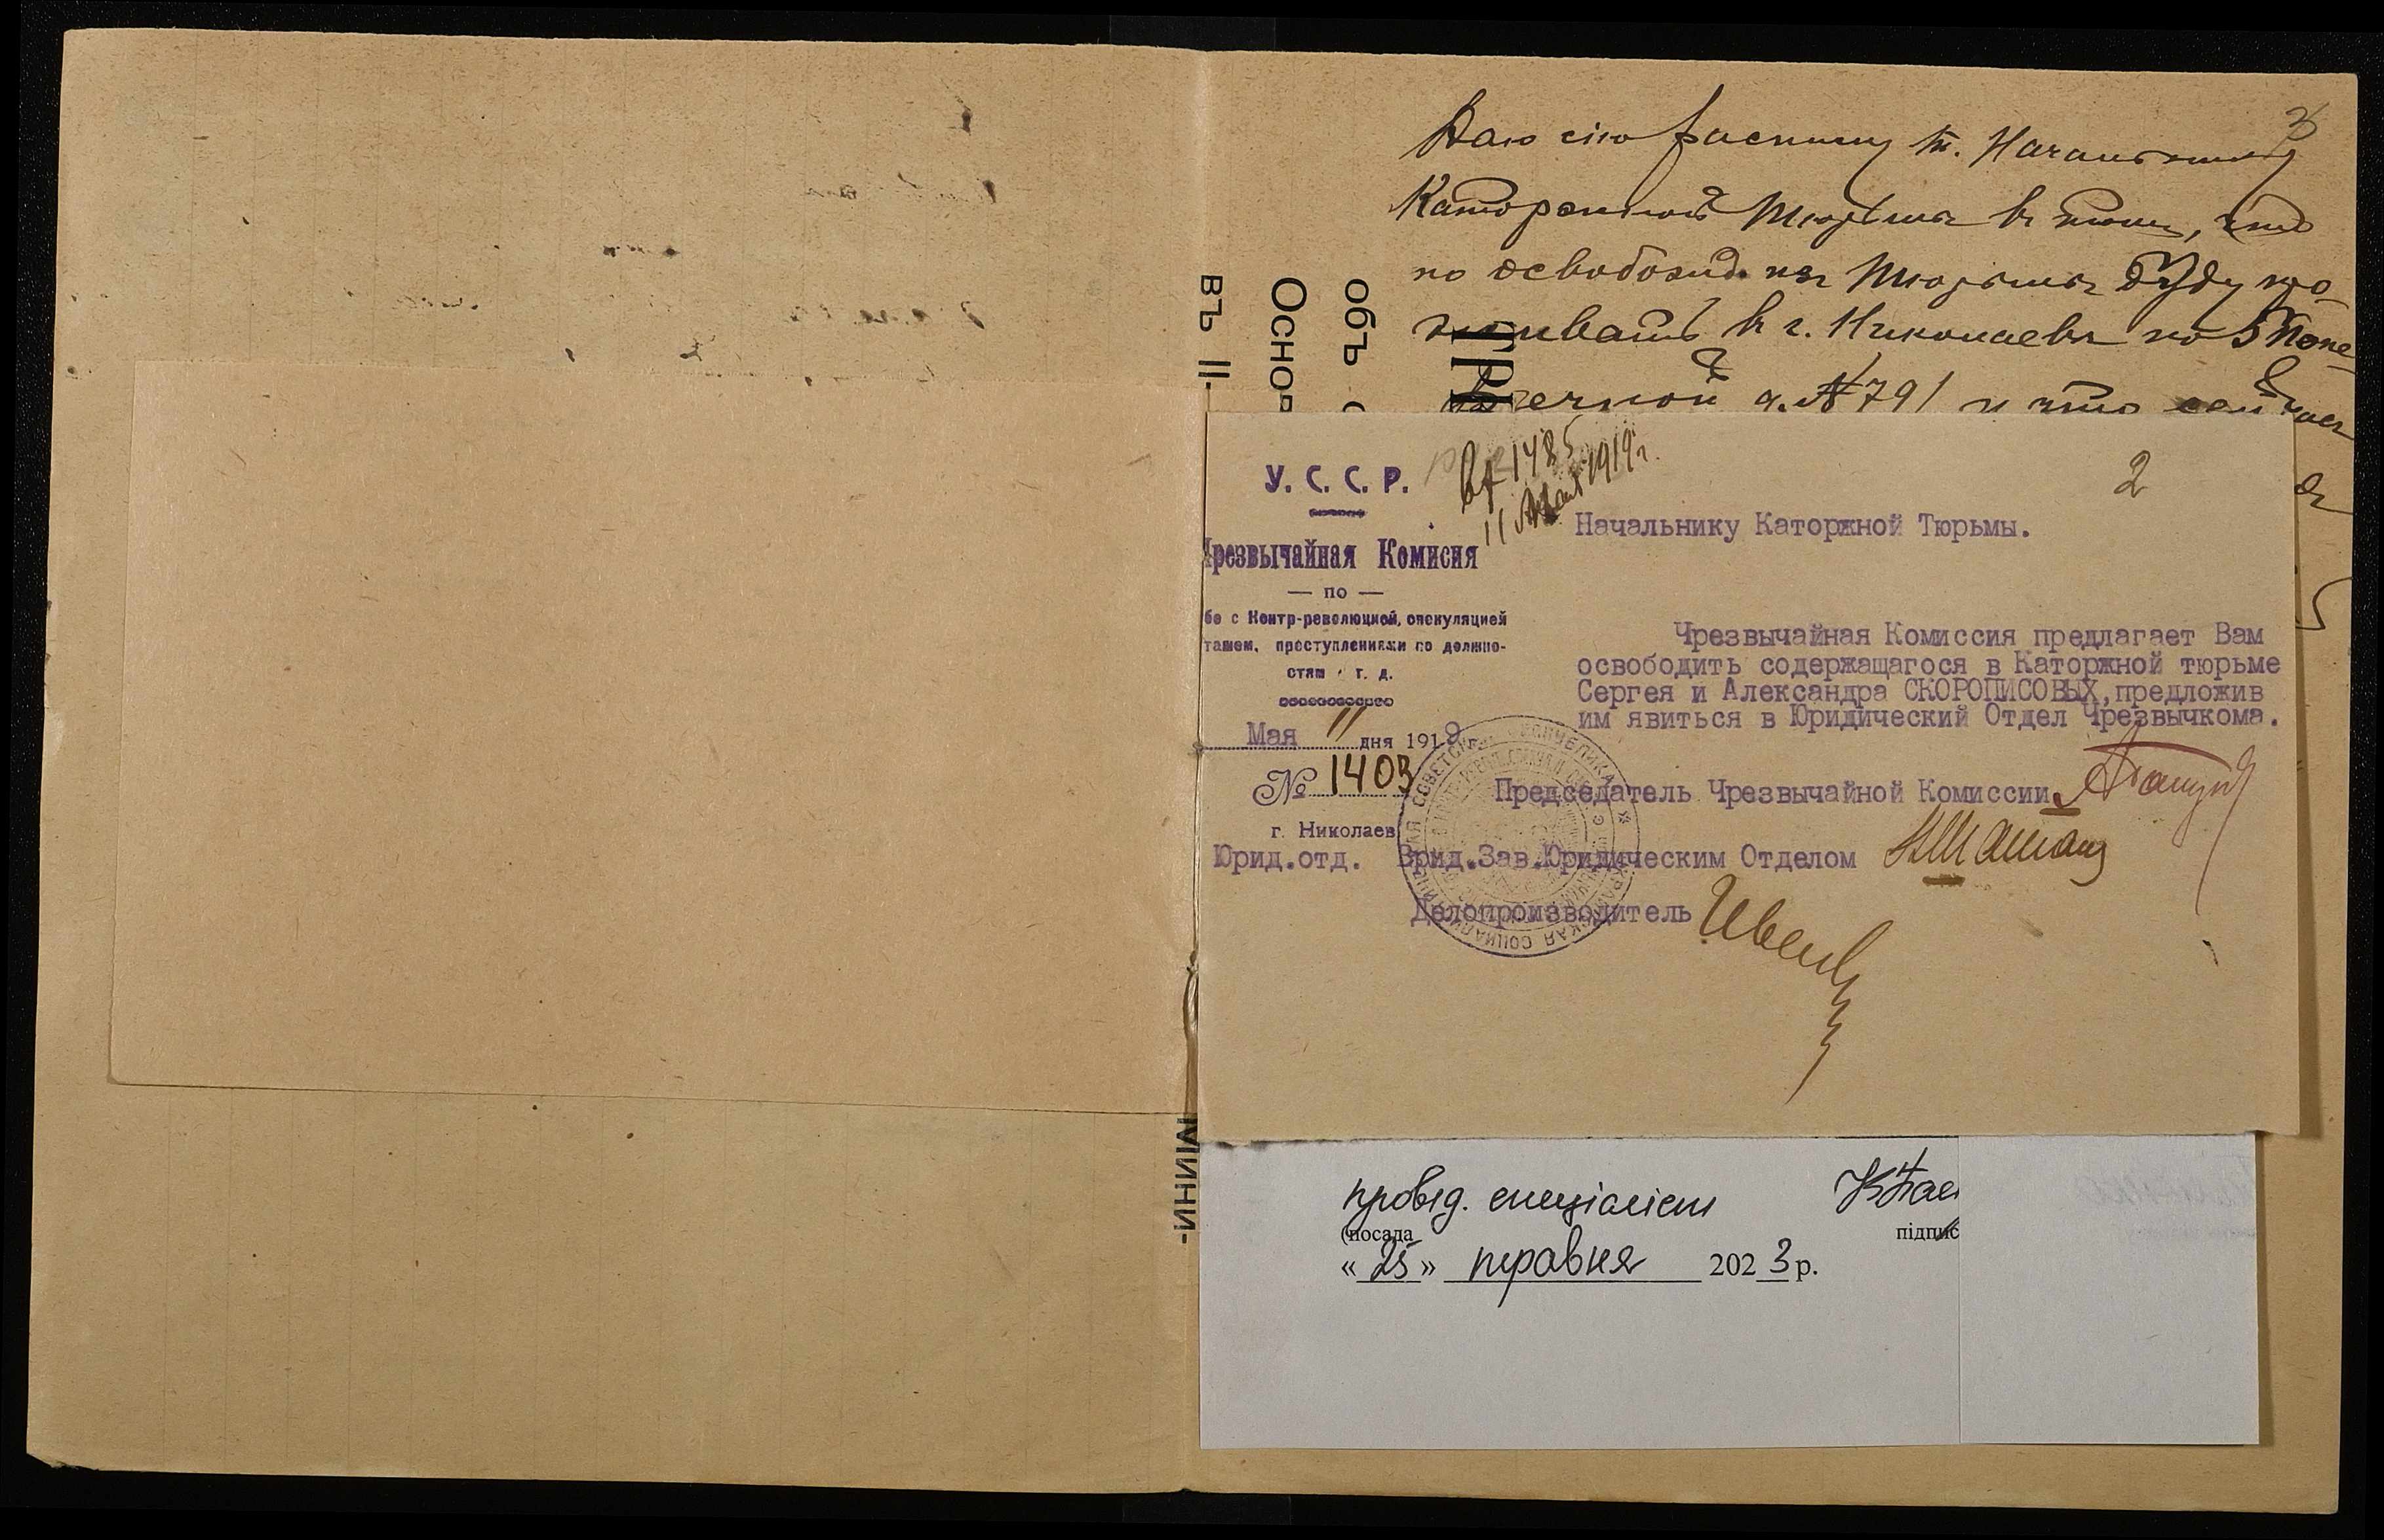 3
Даю сію расписку т. Начальнику
Каторжной Тюрьмы въ томъ, что
по освобожд. изъ Тюрьмы буду про-
живать в г. Николаевѣ по 5 Попе-
речной д. № 791 и что сейчас
въ II-
Основ
объ
мини-
2
У. С. С. Р.
вх 1485
11 1919 г.
Начальнику Каторжной Тюрьмы.
Чрезвычайная Комисия
— по —
бе с Контр-революцией, спекуляцией
тажем, преступлениями по должно-
стям и т. д.
Мая 11 дня 1919 г.
№ 1403
г. Николаев
Юрид.отд.
Чрезвычайная Комиссия предлагает Вам
освободить содержащагося в Каторжной тюрьме
Сергея и Александра СКОРОПИСОВЫХ,предложив
им явиться в Юридический Отдел Чрезвычкома.
Председатель Чрезвычайной Комиссии
Врид.Зав.Юридическим Отделом
Делопроизводитель
провід. спеціаліст
(посада
підпис
« 25 » травня 2023 р.